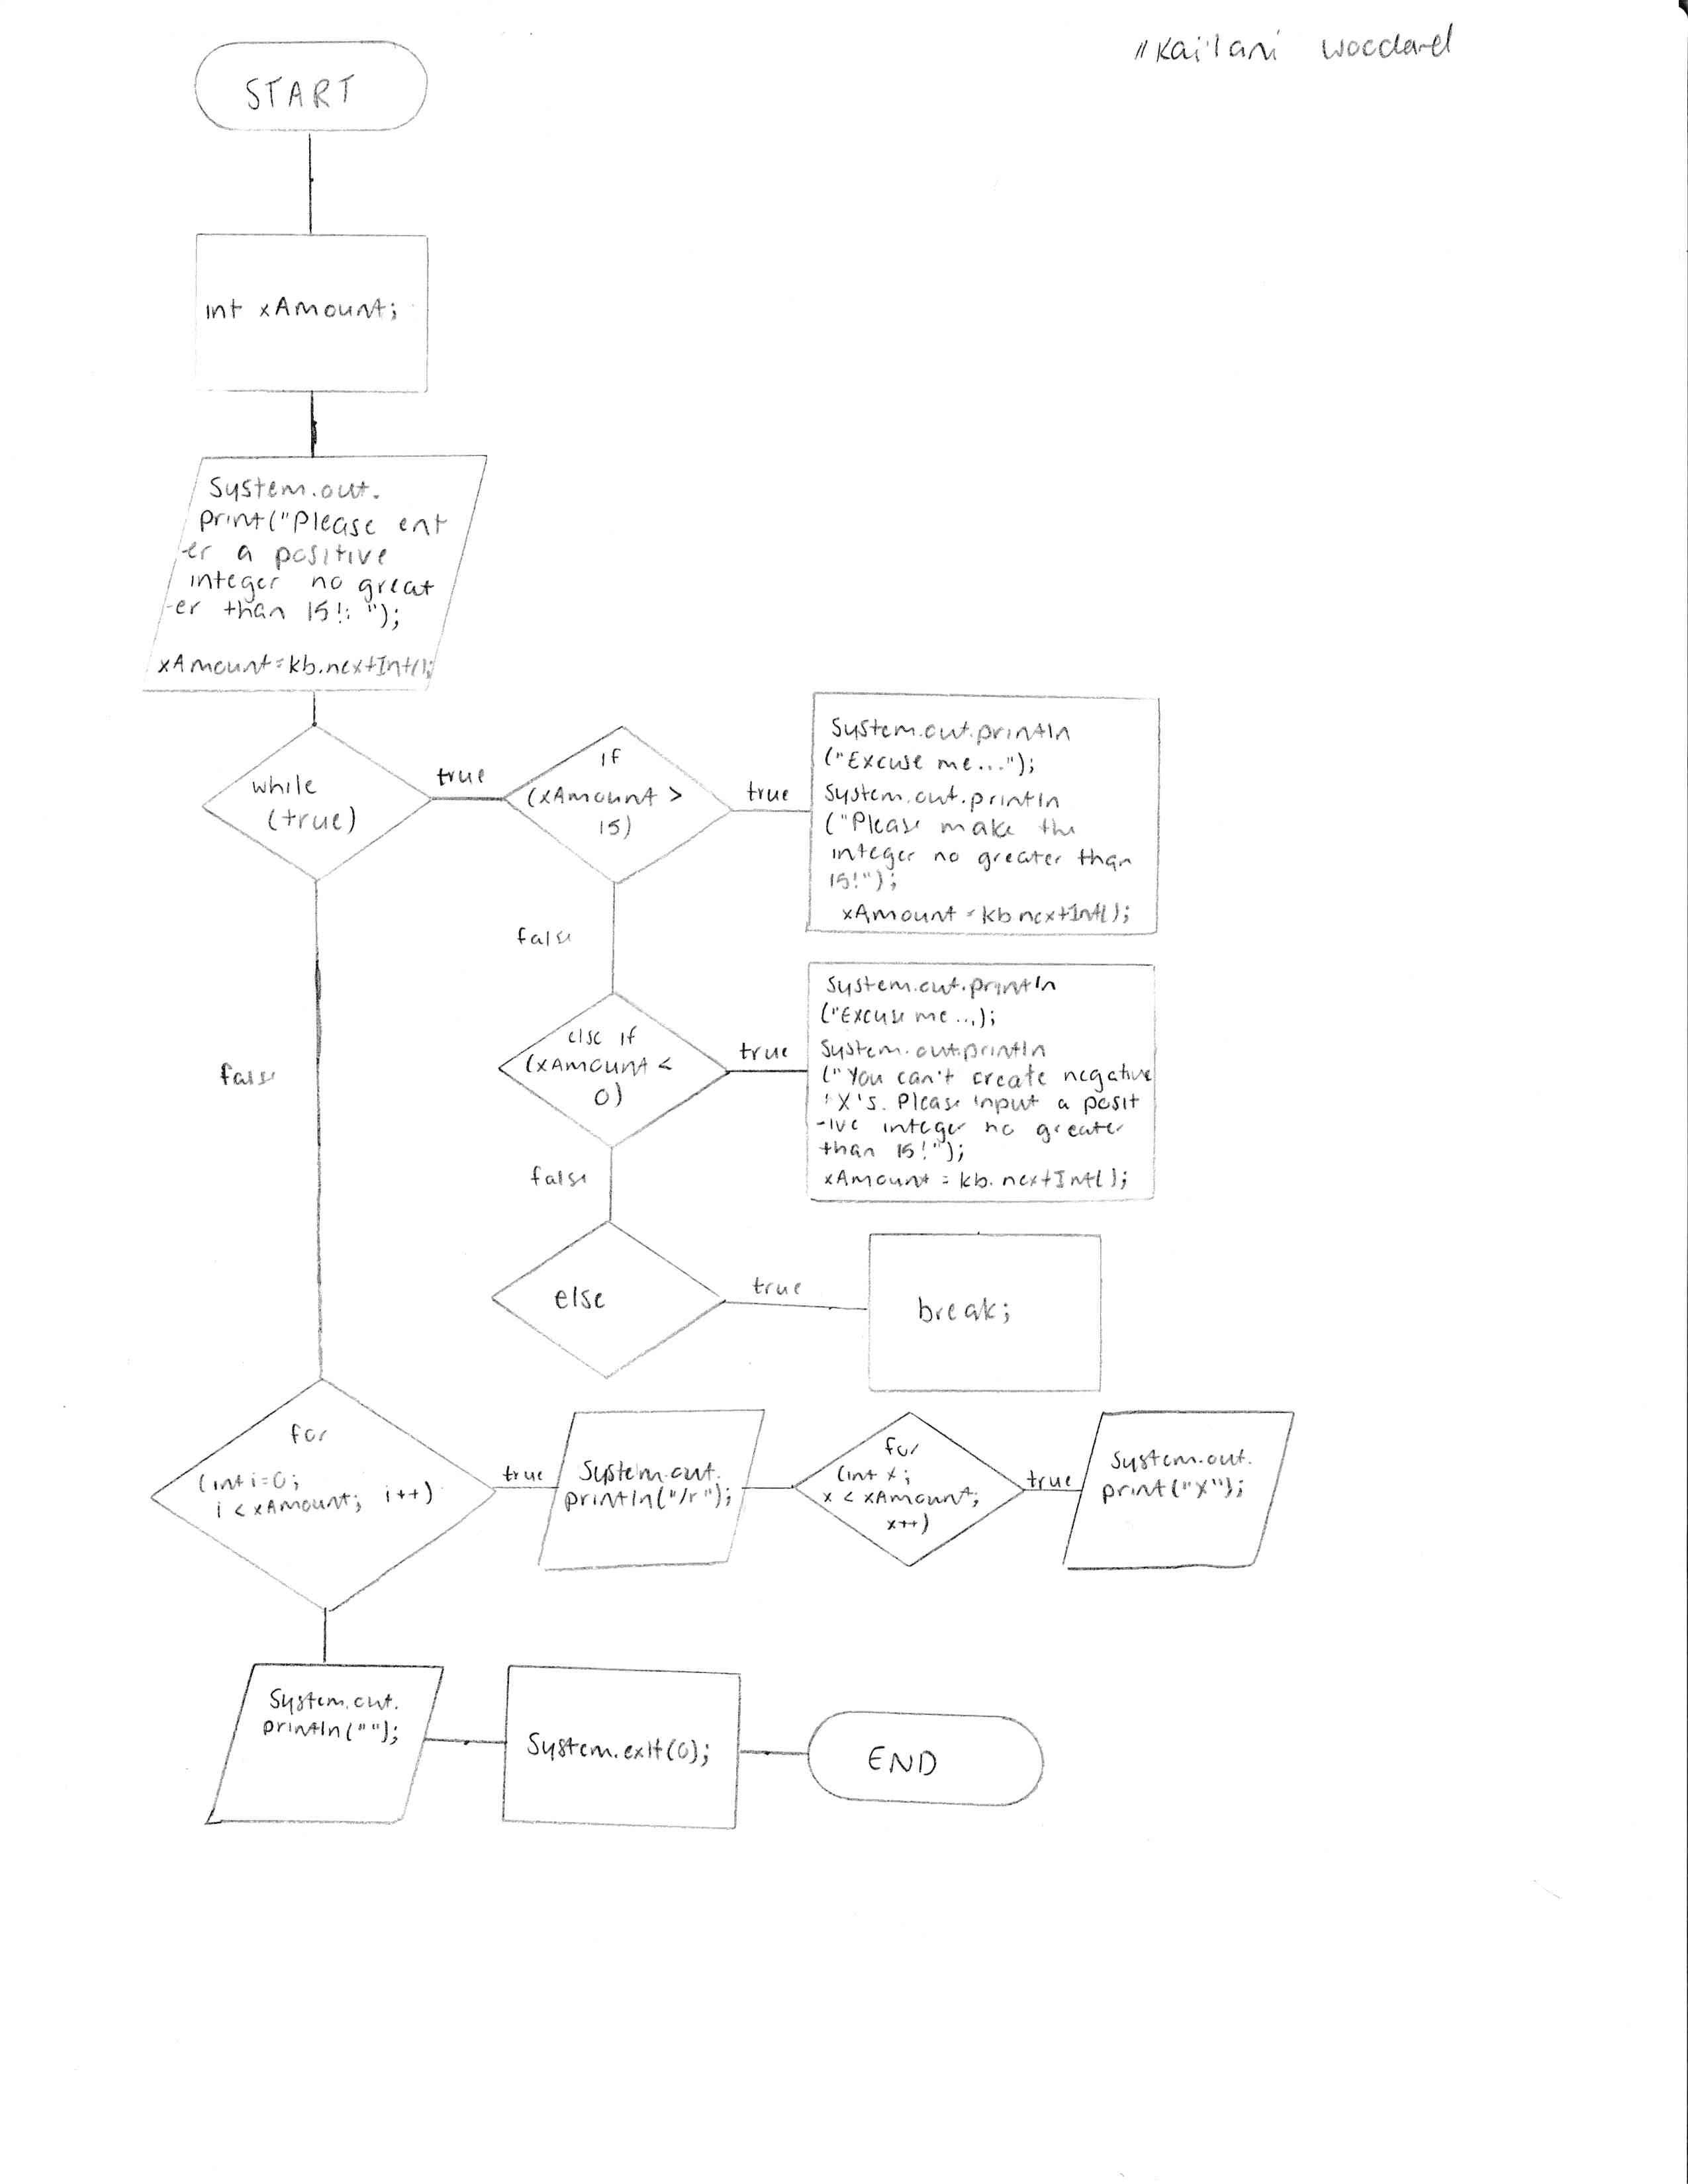 "Kai'lani Woodard
START
int xAmount;
System.out.
print("Please ent
-er a positive
integer no great
-er than 15!: ");
xAmount=kb.nextInt();
while
(true)
true
if
(xAmount >
15)
true
System.out.println
("Excuse me...");
System.out.println
("Please make the
integer no greater than
15!");
xAmount = kb.nextInt();
false
false
else if
(xAmount <
0)
true
System.out.println
("Excuse me...);
System.out.println
("You can't create negative
'X's. Please input a posit
-ive integer no greater
than 15!");
xAmount = kb.nextInt();
false
else
true
break;
for
(int i=0;
i < xAmount; i++)
true
System.out.
println("/r");
for
(int x;
x < xAmount;
x++)
true
System.out.
print("X");
System.out.
println("");
System.exit(0);
END